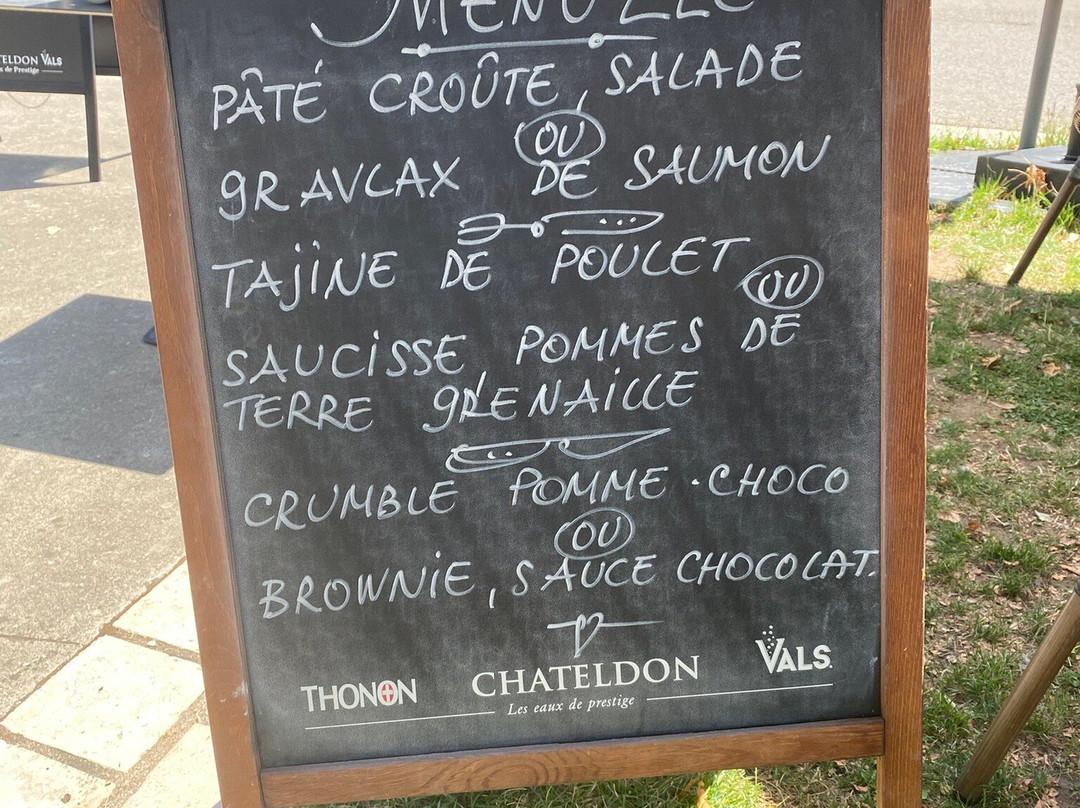 PÂTÉ CROÛTE, SALADE
OU
GRAVLAX DE SAUMON
TAJINE DE POULET
OU
SAUCISSE POMMES DE
TERRE GRENAILLE
CRUMBLE POMME · CHOCO
OU
BROWNIE, SAUCE CHOCOLAT.
THONON
CHATELDON
VALS
Les eaux de prestige
TELDON VALS
x de Prestige